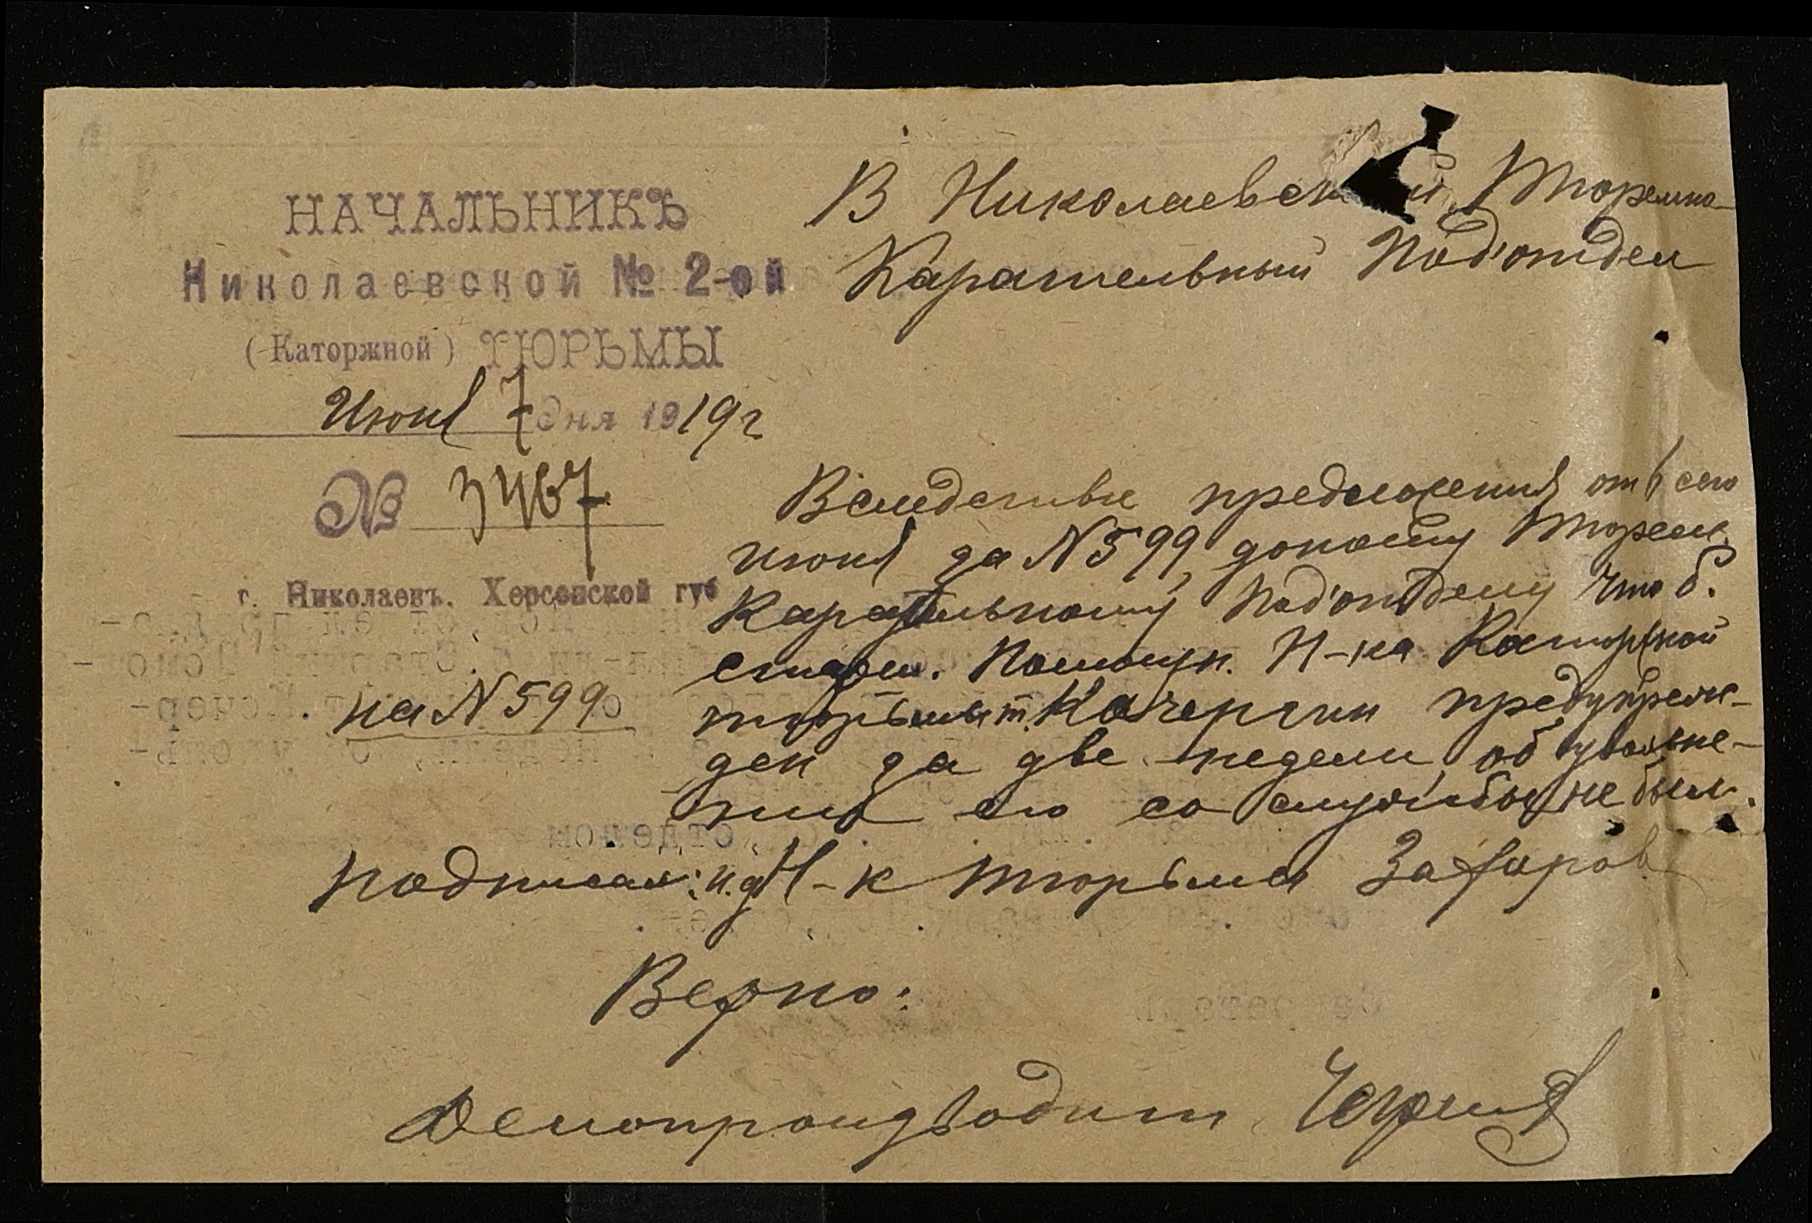 НАЧАЛЬНИКЪ
Николаевской № 2-ой
(Каторжной) ТЮРЬМЫ
Июня 7 дня 1919 г
№ 3467
г. Николаевъ, Херсонской губ
на N 599
В Николаевск й Тюремно-
Карательный Под'отдел
Вследствие предложения от 6 сего
июня за N 599, доношу Тюремн.
Карательному Под'отделу что б.
старш. Помощн. Н-ка Каторжной
тюрьмы т. Качергин предупреж-
ден за две недели об увольне-
нии его со службы не был.
подписал: и.д. Н-к тюрьмы Захаров
Верно:
Делопроизводит